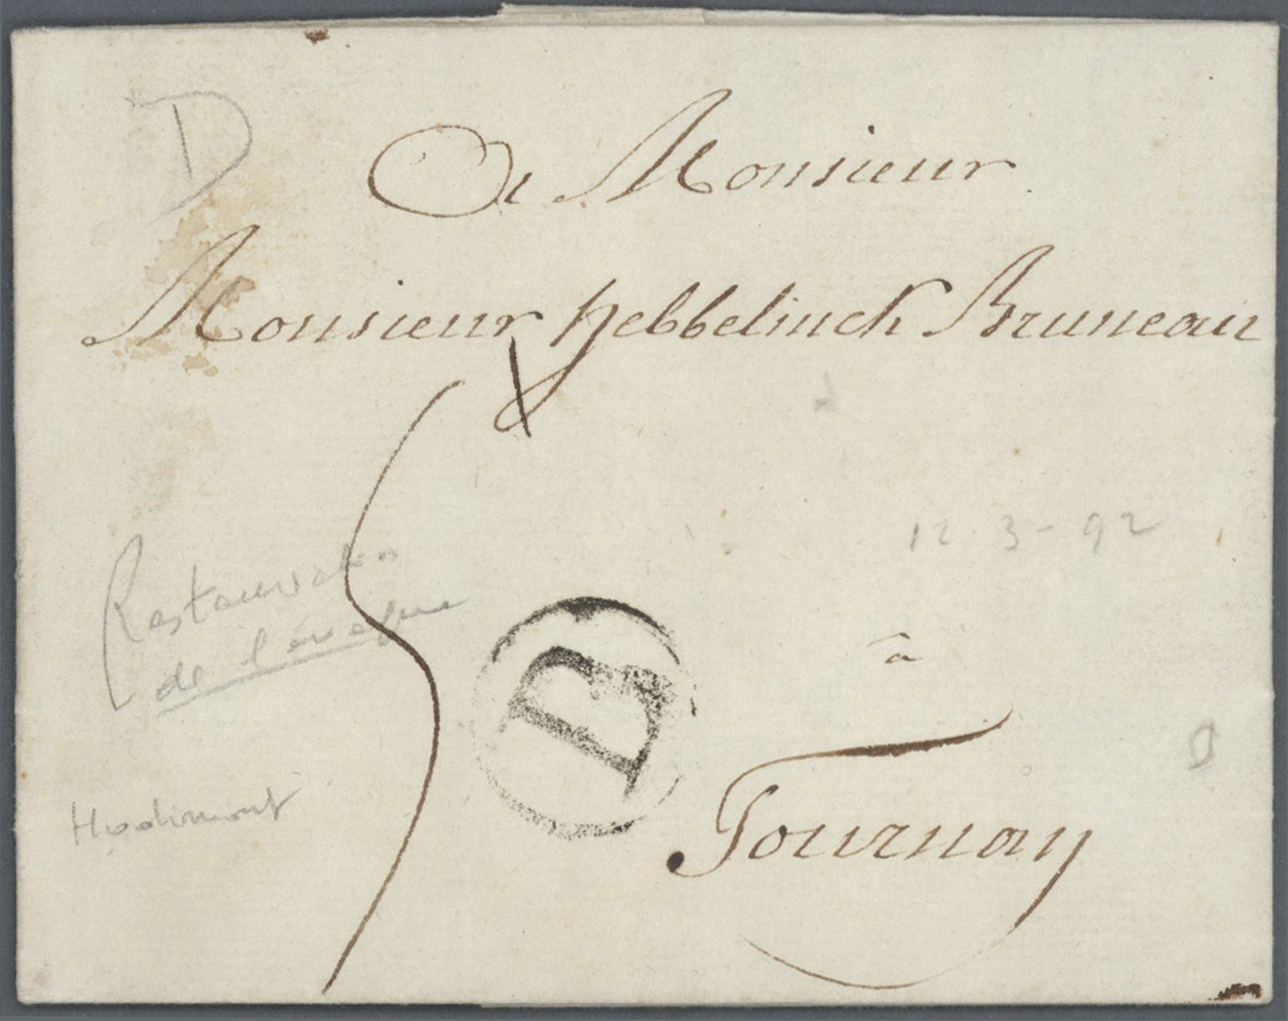 D
A Monsieur
Monsieur hebbelinck Bruneau
12-3-92
Restauration
de l'évêque
B
à
Hodimont
Tournay